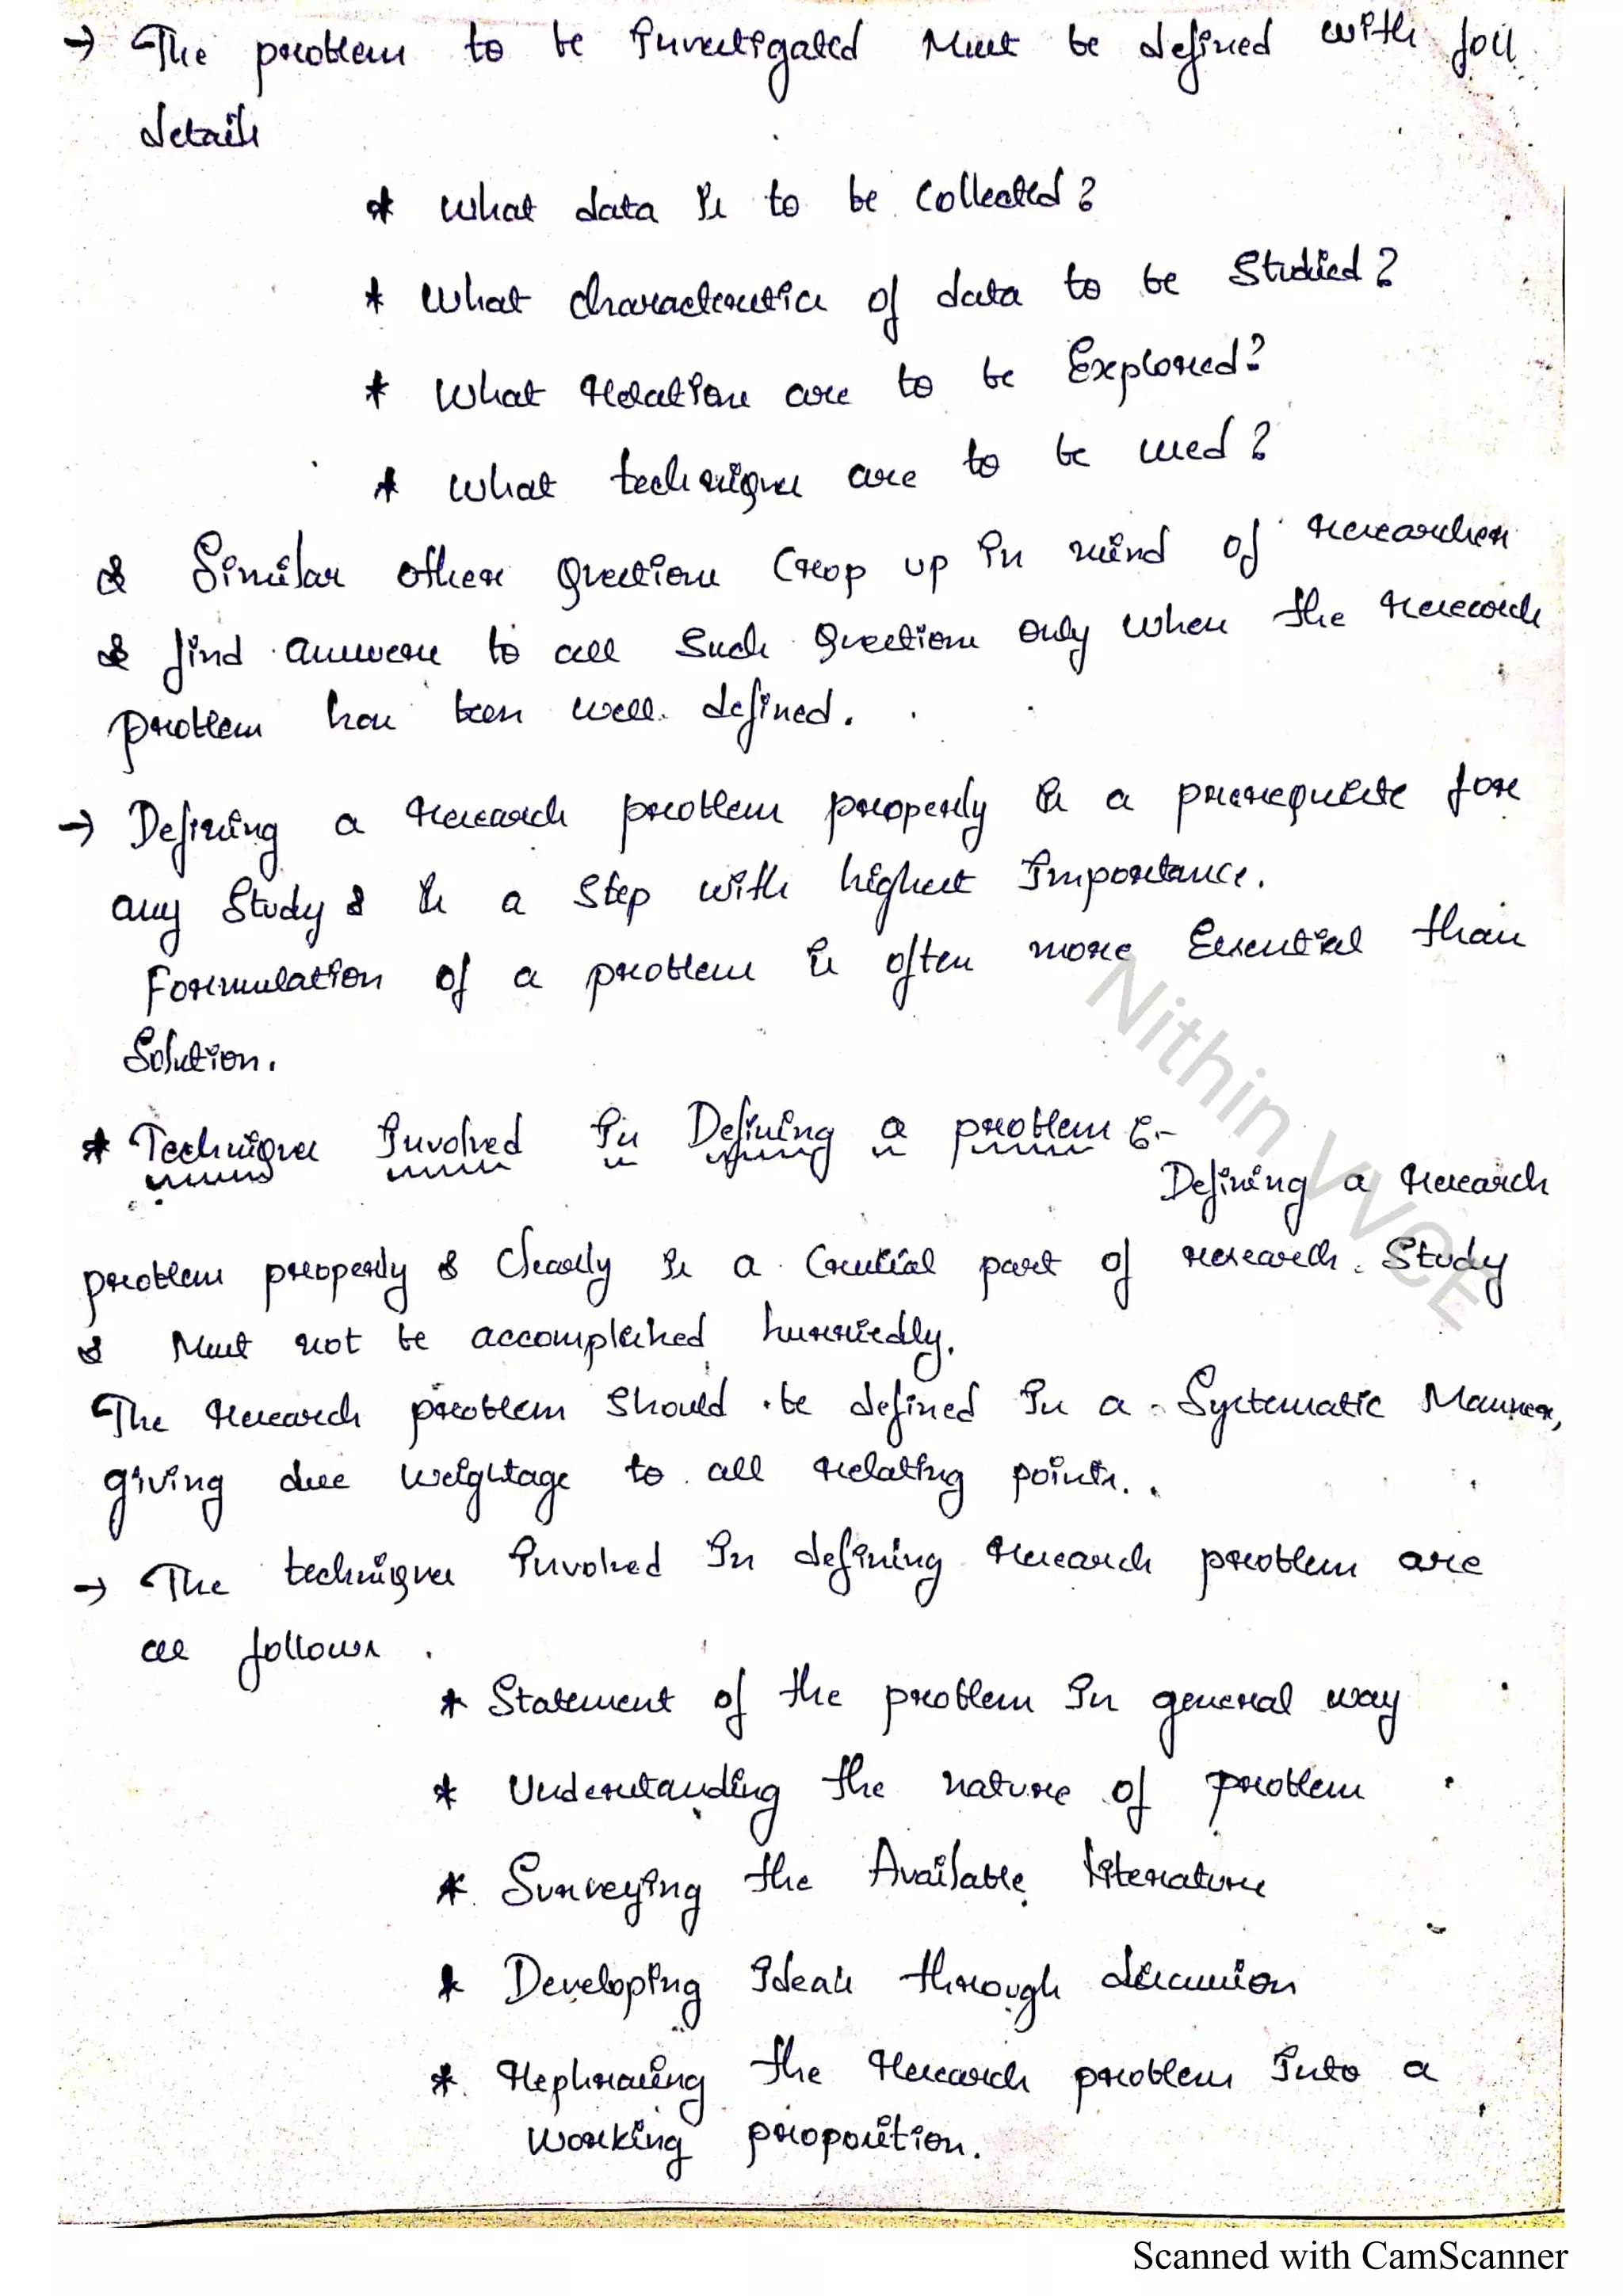 → The problem to be Investigated Must be defined with foll
details
* What data is to be collected?
* What characteristics of data to be studied?
* What relations are to be Explored?
* What techniques are to be used?
& Similar other Questions Crop up in mind of researcher
& find answers to all such Questions only when the research
problem has been well defined.
→ Defining a research problem properly is a prerequisite for
any study & is a step with highest Importance.
Formulation of a problem is often more Essential than
Solution.
* Techniques Involved In Defining a problem :-
Defining a research
problem properly & clearly is a Crucial part of research study
& Must not be accomplished hurriedly.
The research problem should be defined In a Systematic Manner,
giving due weightage to all relating points.
→ The techniques Involved In defining research problem are
as follows
* Statement of the problem In general way
* Understanding the nature of problem
* Surveying the Available literature
* Developing Ideas through discussion
* Rephrasing the research problem Into a
working proposition.
Nithin VVCE
Scanned with CamScanner